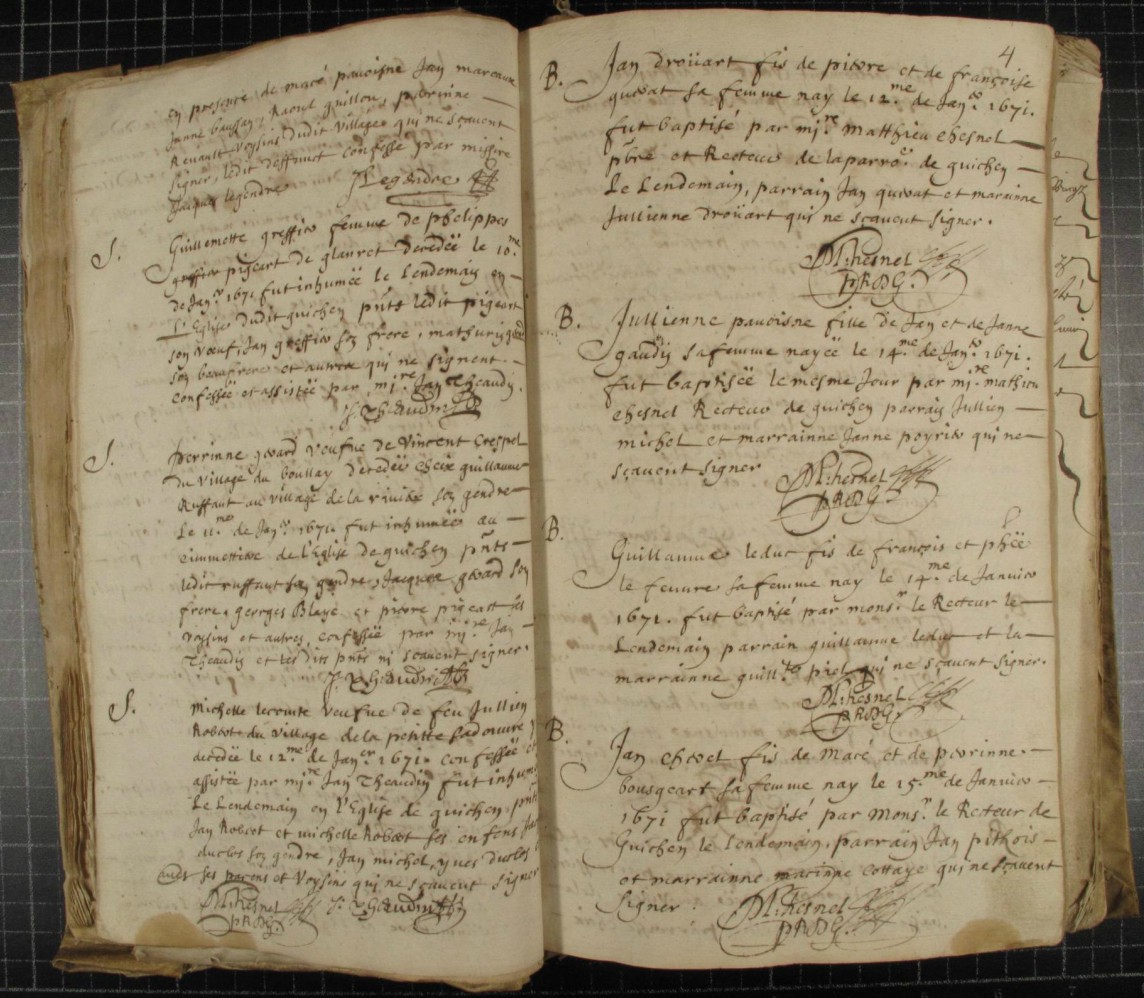 en presence de macé pauoisne Jan marcaux
Janne baussay, Raoul guillou, perrinne
Renault voysins dudit village qui ne scavent
signer, ledit deffunct confessé par missire
Jacques legendre JLegendre
S. Guillemette greffier femme de phelippes
greffier pigeart de glanret decedée le 10.me
de Janer 1671 fut inhumée le Lendemain en
L'Eglise dudit guichen pnts ledit pigeart
son veuf, Jan greffier son frere, mathurin
son beaufrere et autres qui ne signent.
confessée et assistée par mire Jan Theaudin.
J. Theaudin
S. perrinne gerard veufue de Vincent Crespel
du village du boullay decedée cheix guillaume
Ruffaut au village de la riviere son gendre
Le 11.me de Janer 1671. fut inhumée au
cimmettiere de l'Eglise de guichen pnts
ledit ruffaut son gendre, Jacques gerard son
frere, georges Blaye et pierre pigeart ses
voysins et autres, confessée par mire Jan
Theaudin et lesdits pnts ni scavent signer.
J. Theaudin
S. Michelle lecomte veufue de feu Jullien
Robert du village de la petitte
decedée le 12.me de Janer 1671. confessée et
assistée par mire Jan Theaudin fut inhumée
Le Lendemain en l'Eglise de guichen, pnts
Jan Robert et michelle Robert ses enfens
duclos son gendre, Jan michel, yues duclos
ses parens et voysins qui ne scavent signer
M: hesnel PRDG. J. Theaudin
4
B. Jan droüart fis de pierre et de françoise
quevat sa femme nay le 12.me de Janer 1671.
fut baptisé par mire matthieu chesnel
pbre et Recteur de la parroe de guichen
Le Lendemain, parrain Jan quevat et marainne
Jullienne droüart qui ne scavent signer.
M: hesnel
PRDG.
B. Jullienne pauoisne fille de Jan et de Janne
gaudin sa femme nayée le 14.me de Janer 1671.
fut baptisée le mesme Jour par mire mathieu
chesnel Recteur de guichen parrain Jullien
michel et marrainne Janne poyrier qui ne
scavent signer M: hesnel
PRDG.
B. Guillaume leduc fis de françois et phée
le feuure sa femme nay le 14.me de Januier
1671. fut baptisé par monsr le Recteur le
Lendemain parrain guillaume leduc et la
marrainne guillte piel qui ne scavent signer.
M: hesnel
PRDG.
B. Jan chevet fis de Macé et de perrinne
bousgeart sa femme nay le 15.me de Januier
1671 fut baptisé par Monsr le Recteur de
Guichen le Lendemain, parrain Jan pithois
et marrainne macinne cottaye qui ne scavent
signer. M: hesnel
PRDG.